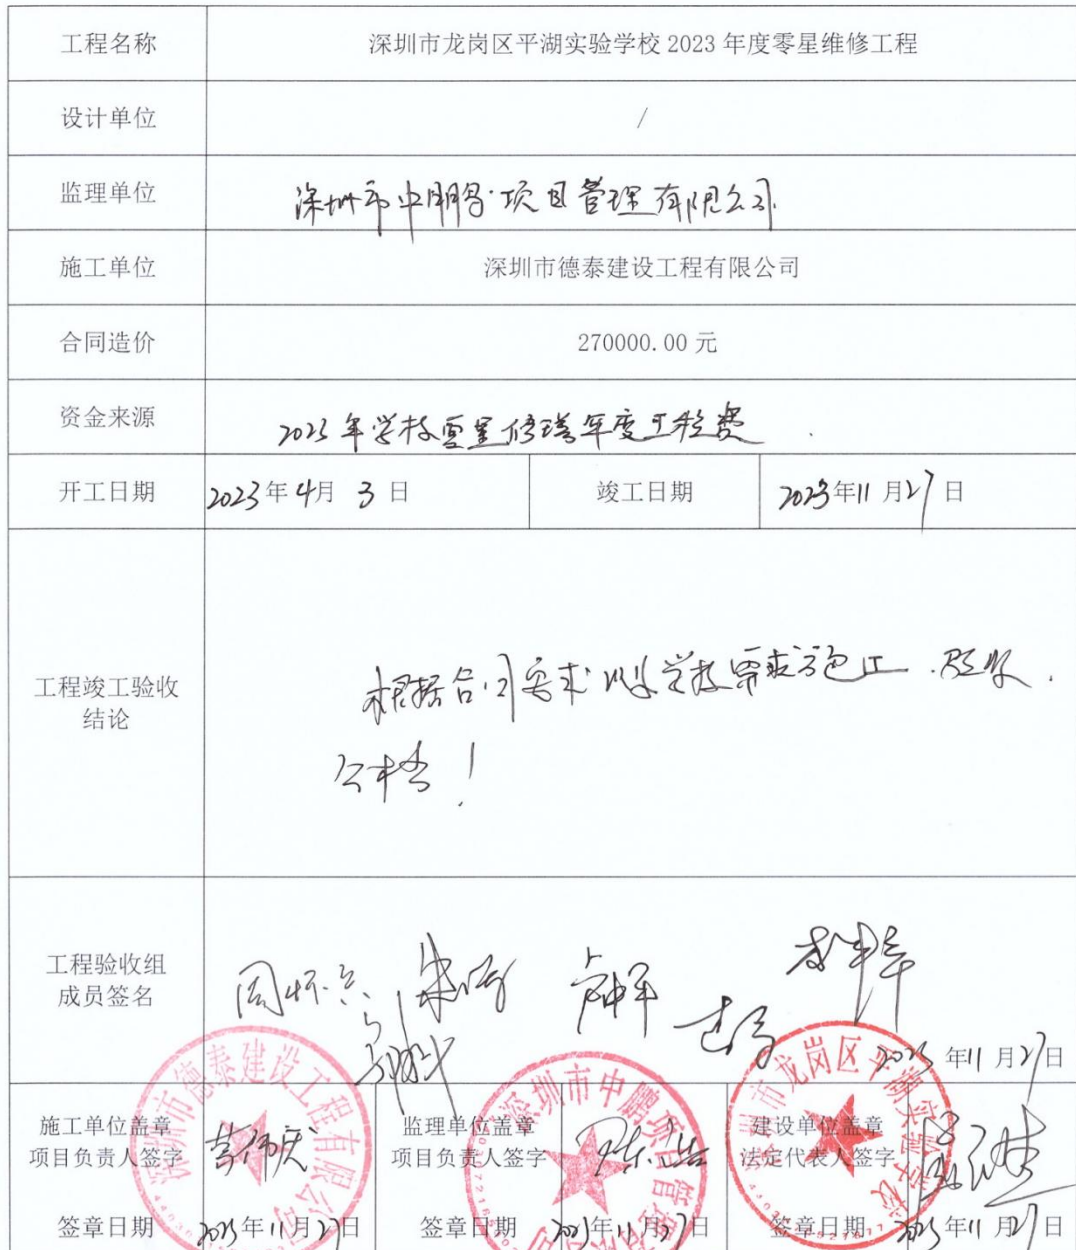 工程名称 深圳市龙岗区平湖实验学校 2023 年度零星维修工程
设计单位 /
监理单位 深圳市中鹏项目管理有限公司
施工单位 深圳市德泰建设工程有限公司
合同造价 270000.00 元
资金来源 2023年学校零星修缮年度工程费
开工日期 2023年 4月 3 日 竣工日期 2023年11 月27日
工程竣工验收
结论
根据合同要求 学校需求施工 验收
合格！
工程验收组
成员签名
2023 年11 月27日
施工单位盖章
项目负责人签字
签章日期 2023年11月27日
监理单位盖章
项目负责人签字
签章日期 2023年11月27日
建设单位盖章
法定代表人签字
签章日期 2023年11月27日
深圳市德泰建设工程有限公司
深圳市中鹏项目管理有限公司
深圳市龙岗区平湖实验学校